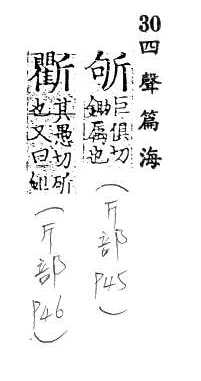 30四聲篇海
斪
巨俱切
鋤屬也
(斤部P45)
其愚切斫
也又曰鉏
(斤部P46)